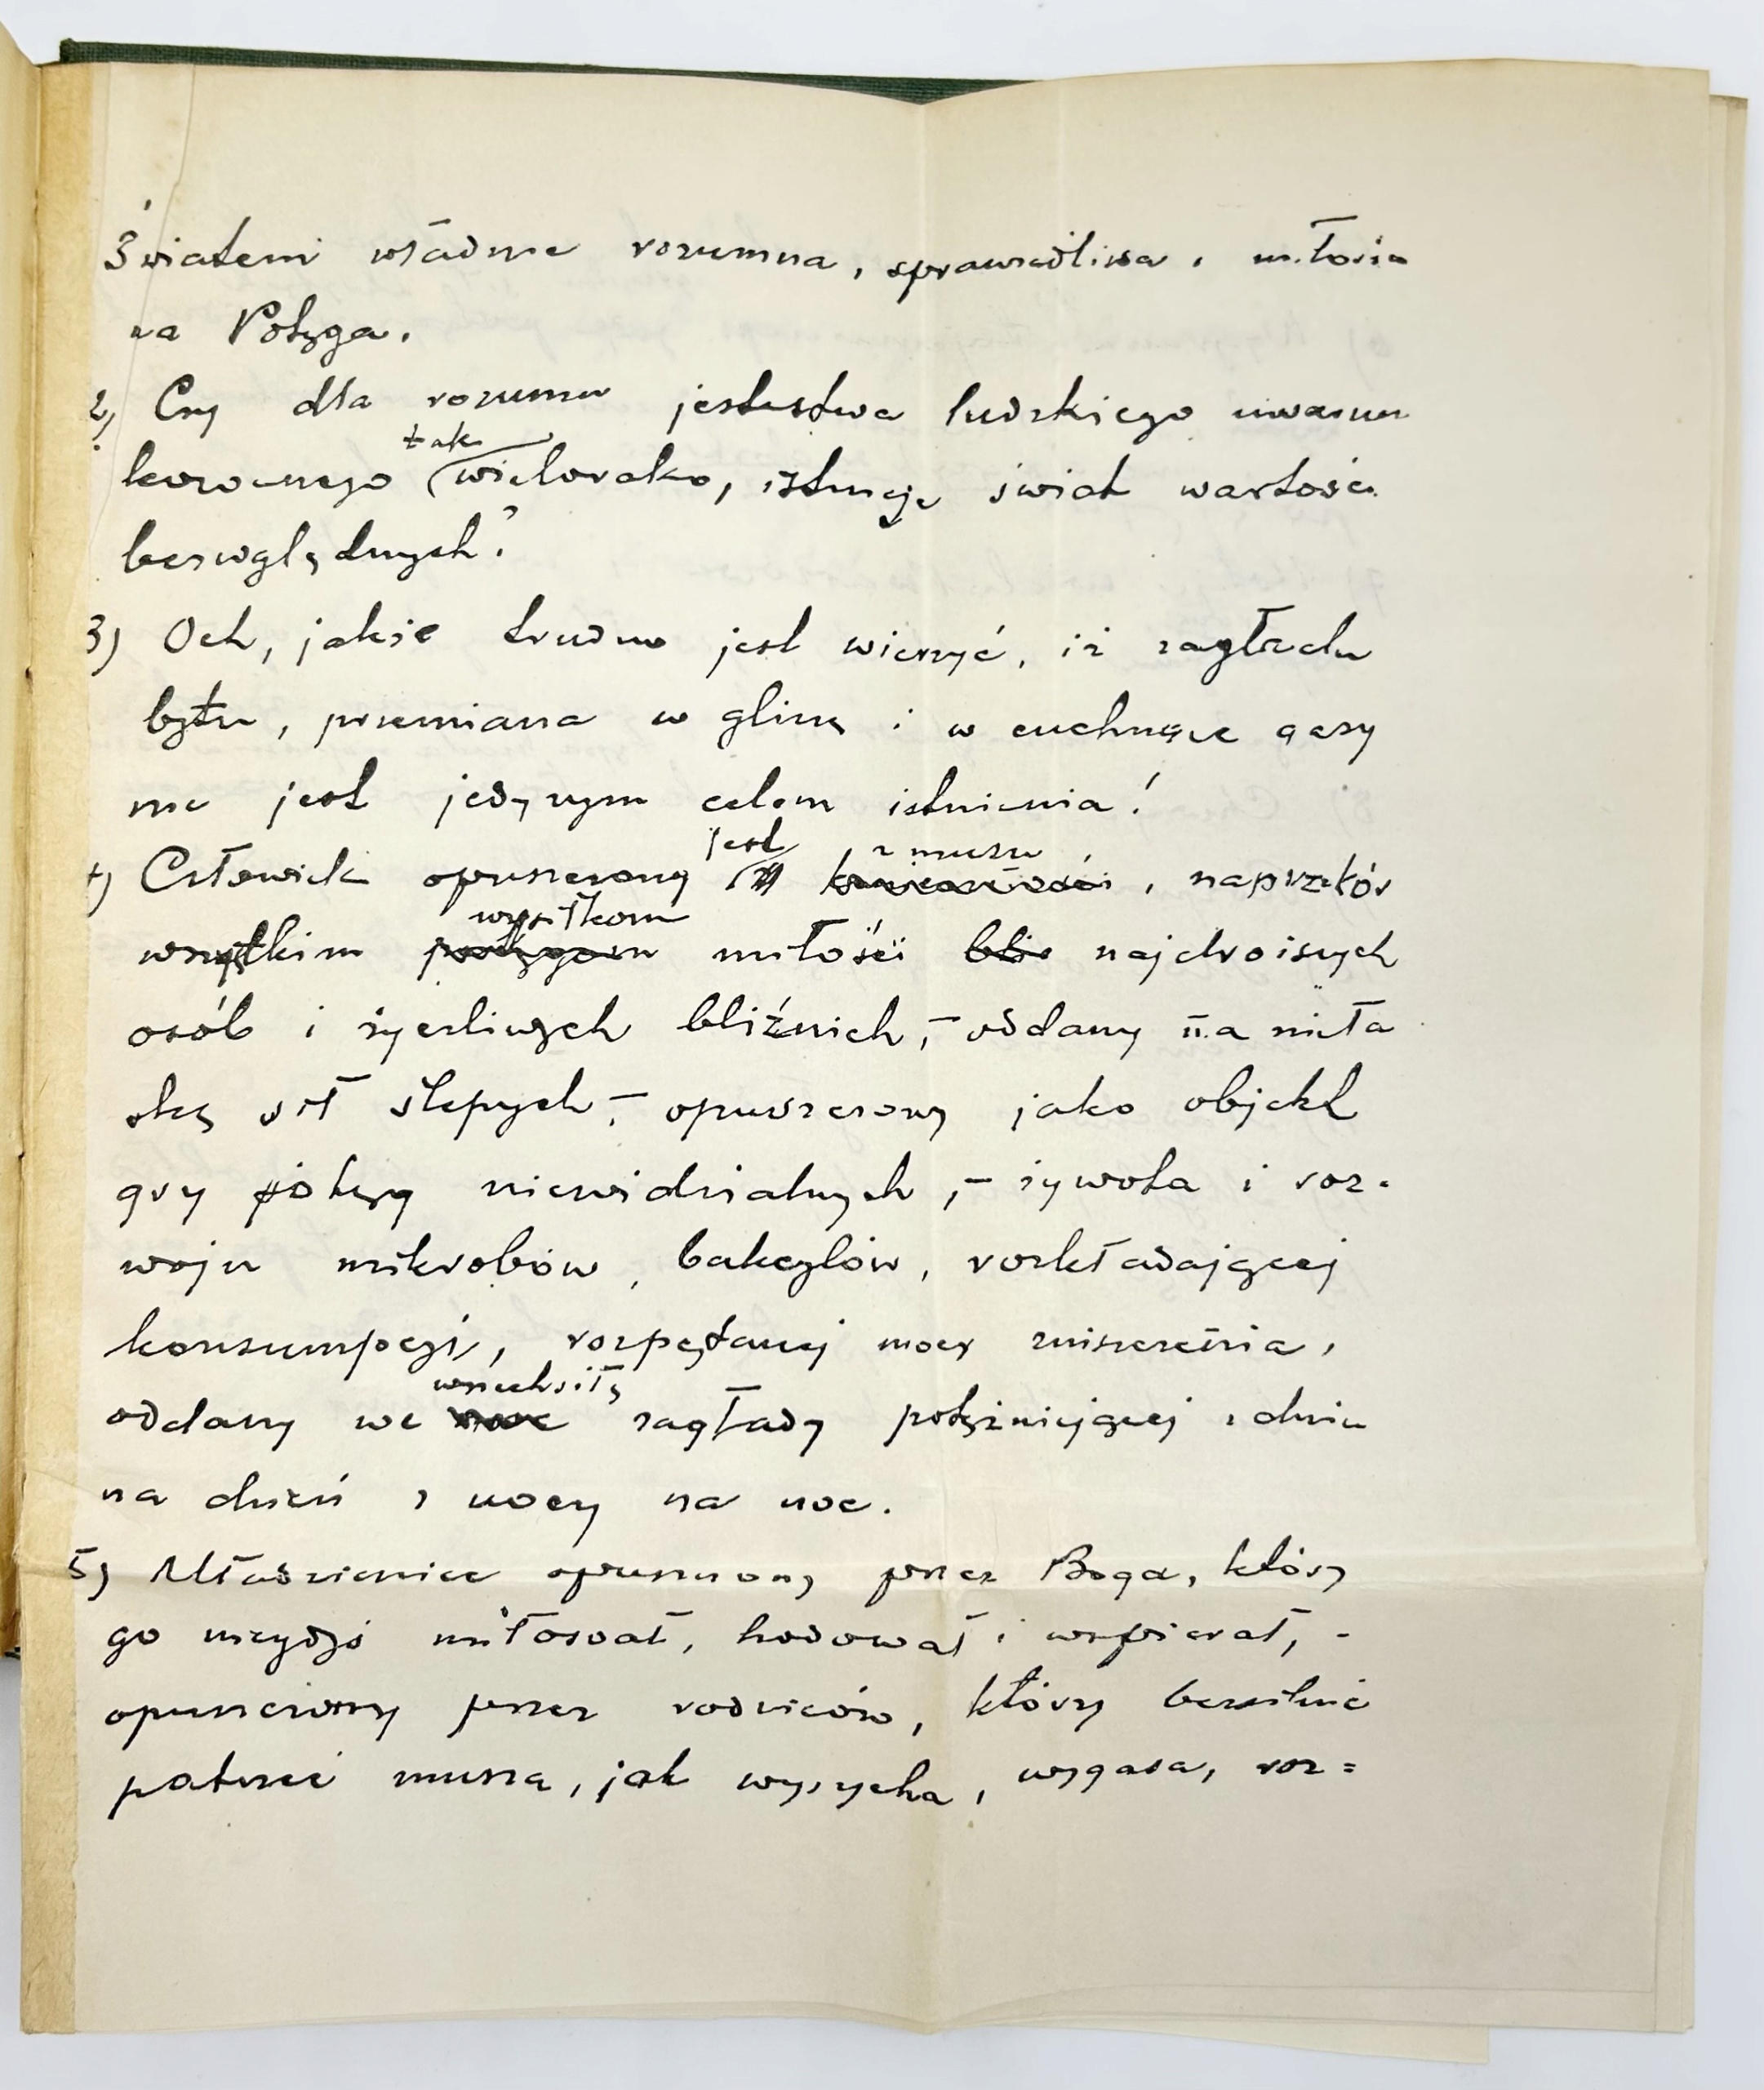 Światem władnie rozumna, sprawiedliwa, miłosier
na Potęga.
2) Czy dla rozumu jestestwa ludzkiego uwarun
kowanego tak wielorako, istnieje świat wartości
bezwględnych?
3) Och, jakże trudno jest wierzyć, iż zagłada
bytu, przemiana w glinę i w cuchnące gazy
nie jest jedynym celem istnienia!
4) Człowiek opuszczony jest z musu, naprzekór
wszystkim wysiłkom miłości bliż najdroższych
osób i życzliwych bliźnich, – oddany na nieła
skę sił ślepych, – opuszczony jako objekt
gry potęg niewidzialnych, – żywota i roz-
woju mikrobów, bakcylów, rozkładającej
konsumpcji, rozpętanej mocy zniszczenia,
oddany we wszechsiłę zagłady potężniejącej z dnia
na dzień z nocy na noc.
5) Młodzieniec opuszczony przez Boga, który
go niegdyś miłował, hodował i wspierał, -
opuszczony przez rodziców, którzy bezsilnie
patrzeć muszą, jak wysycha, wygasa, roz=